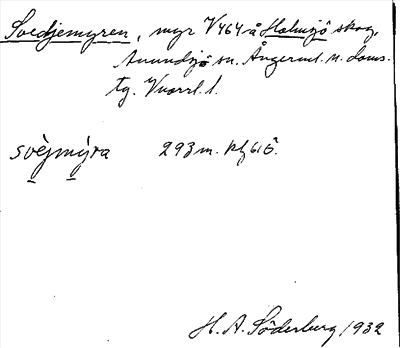 Svedjemyren, myr V464 å Holmsjö skog,
Anundsjö sn. Ångerml. n. doms.
tg. Vnorrl. l.
svèjmýra 293 m. kf 61Ö.
H. A. Söderburg 1932